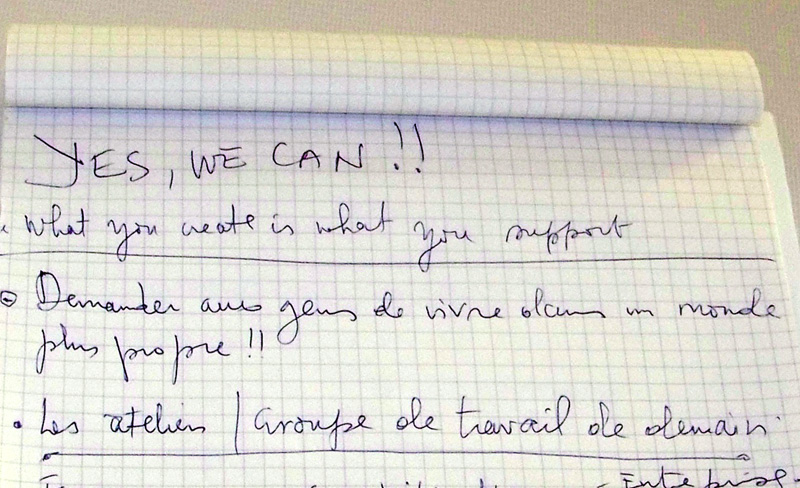 YES, WE CAN !!
What you create is what you support
Demander aux gens de vivre dans un monde
plus propre !!
• Les ateliers | Groupe de travail de demain.
Entreprise